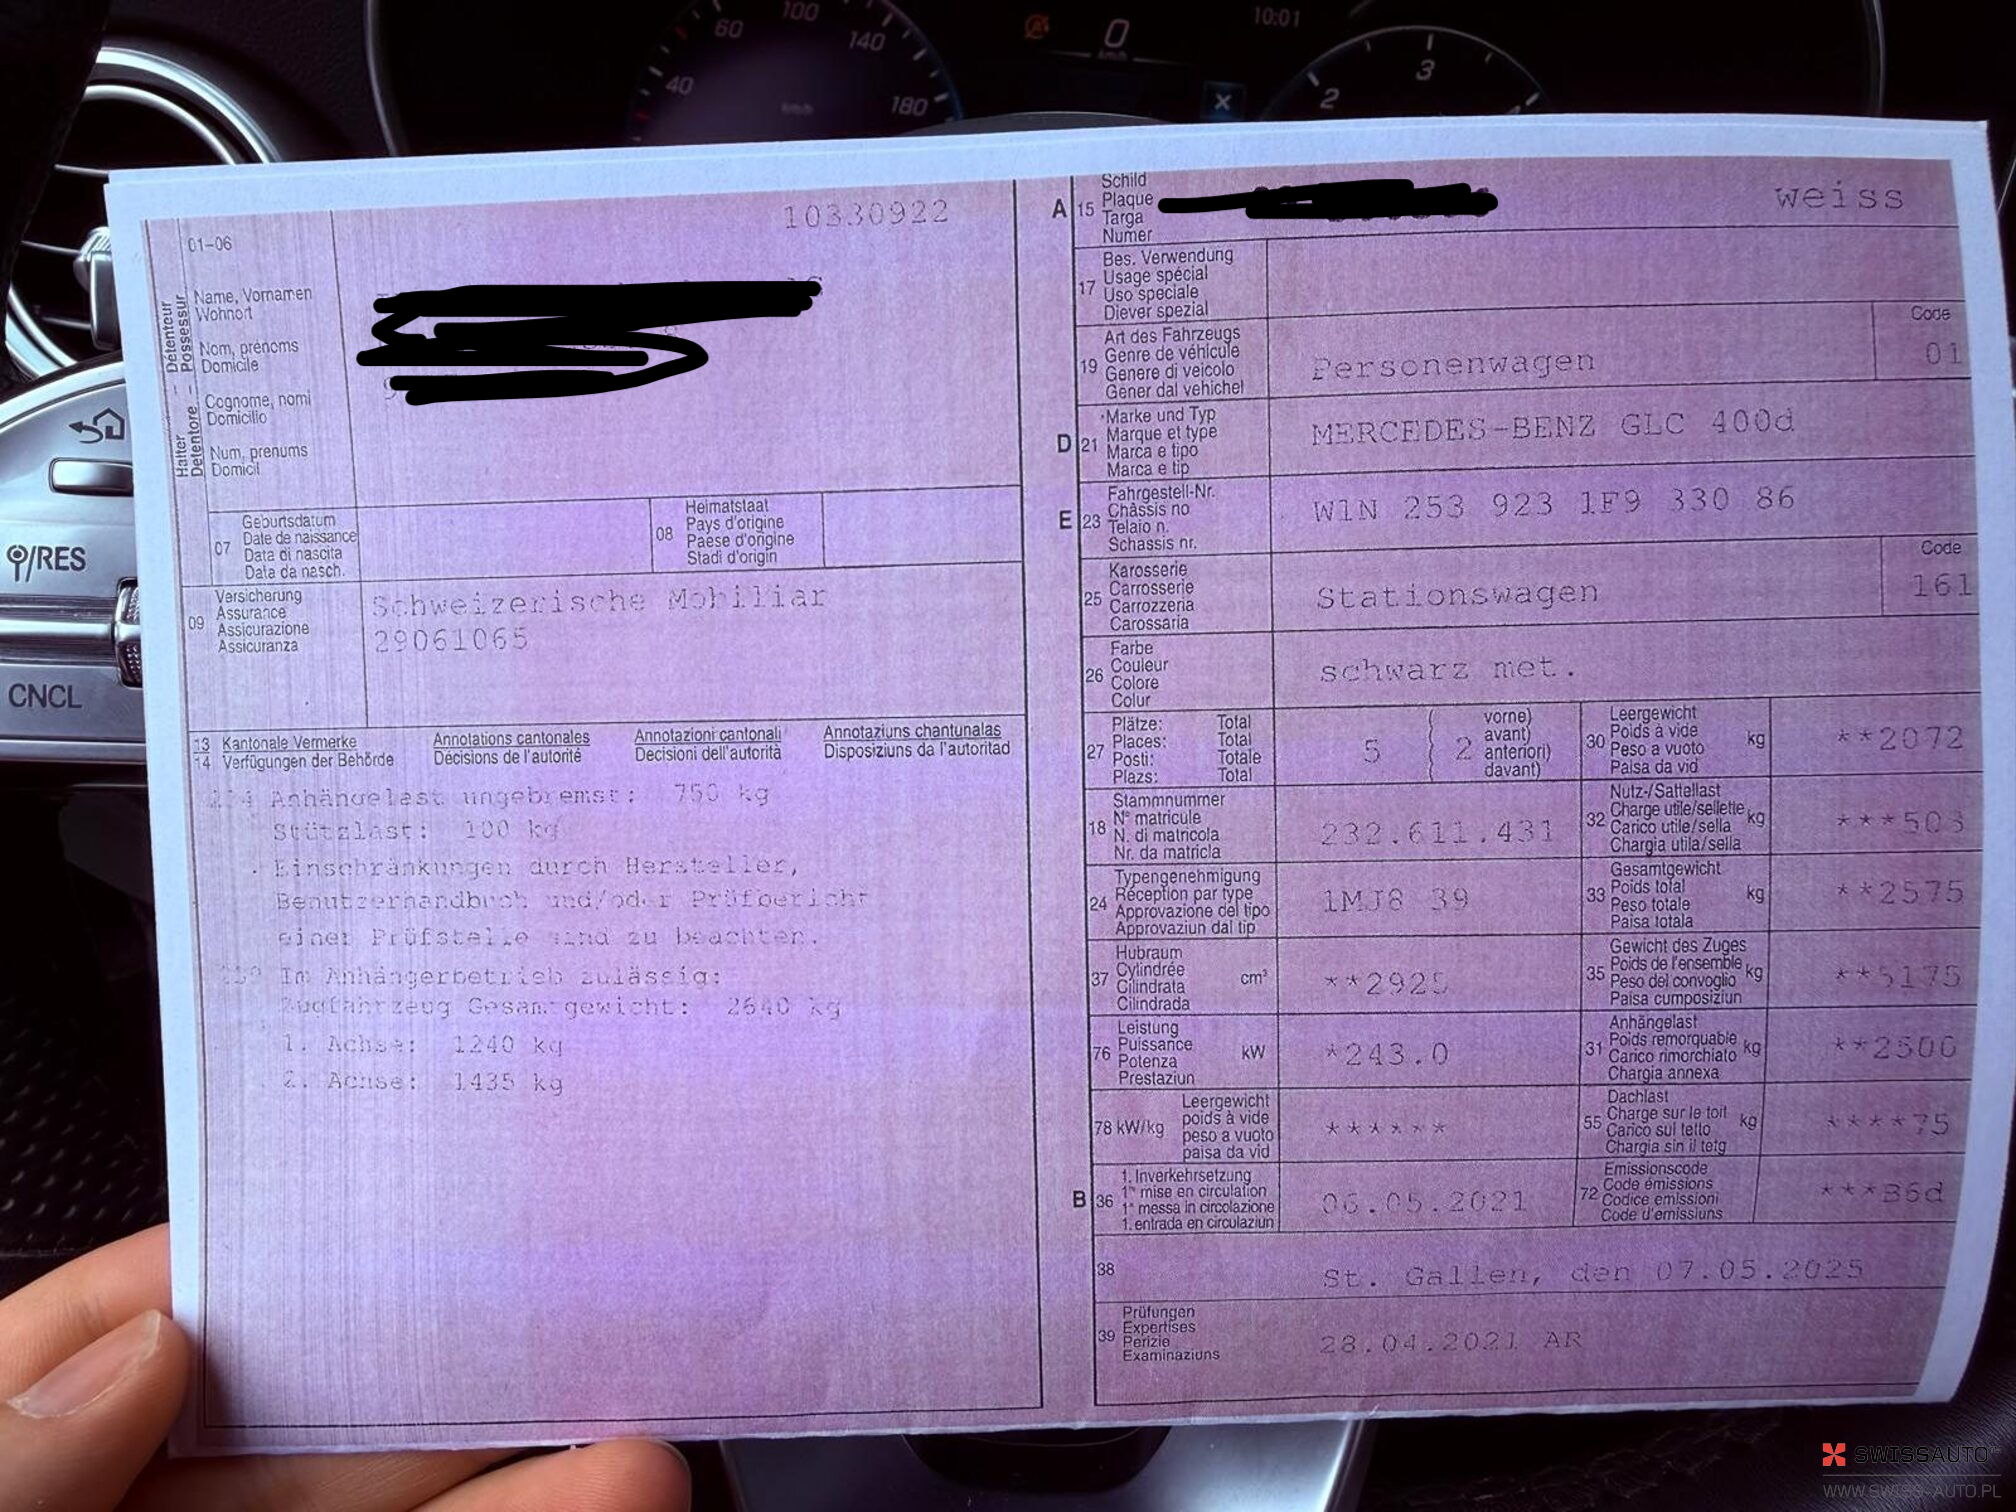 60
100
140
40
km/h
180
0
km/h
10:01
2
3
4
/RES
CNCL
10330922
01-06
Halter – Détenteur
Detentore – Possessur
Name, Vornamen
Wohnort
Nom, prénoms
Domicile
Cognome, nomi
Domicilio
Num, prenums
Domicil
07
Geburtsdatum
Date de naissance
Data di nascita
Data da nasch.
08
Heimatstaat
Pays d'origine
Paese d'origine
Stadi d'origin
09
Versicherung
Assurance
Assicurazione
Assicuranza
Schweizerische Mobiliar
29061065
13 Kantonale Vermerke Annotations cantonales Annotazioni cantonali Annotaziuns chantunalas
14 Verfügungen der Behörde Décisions de l'autorité Decisioni dell'autorità Disposiziuns da l'autoritad
Anhängelast ungebremst: 750 kg
Stützlast: 100 kg
Einschränkungen durch Hersteller,
Benutzerhandbuch und/oder Prüfbericht
einer Prüfstelle sind zu beachten.
Im Anhängerbetrieb zulässig:
Zugfahrzeug Gesamtgewicht: 2640 kg
1. Achse: 1240 kg
2. Achse: 1435 kg
A 15
Schild
Plaque
Targa
Numer
weiss
17
Bes. Verwendung
Usage spécial
Uso speciale
Diever spezial
19
Art des Fahrzeugs
Genre de véhicule
Genere di veicolo
Gener dal vehichel
Personenwagen
Code
01
D 21
Marke und Typ
Marque et type
Marca e tipo
Marca e tip
MERCEDES-BENZ GLC 400d
E 23
Fahrgestell-Nr.
Châssis no
Telaio n.
Schassis nr.
W1N 253 923 1F9 330 86
25
Karosserie
Carrosserie
Carrozzeria
Carossaria
Stationswagen
Code
161
26
Farbe
Couleur
Colore
Colur
schwarz met.
27
Plätze: Total
Places: Total
Posti: Totale
Plazs: Total
5
2
vorne)
avant)
anteriori)
davant)
30
Leergewicht
Poids à vide
Peso a vuoto
Paisa da vid
kg
**2072
18
Stammnummer
N° matricule
N. di matricola
Nr. da matricla
232.611.431
32
Nutz-/Sattellast
Charge utile/sellette
Carico utile/sella
Chargia utila/sella
kg
***503
24
Typengenehmigung
Réception par type
Approvazione del tipo
Approvaziun dal tip
1MJ8 39
33
Gesamtgewicht
Poids total
Peso totale
Paisa totala
kg
**2575
37
Hubraum
Cylindrée
Cilindrata
Cilindrada
cm³
**2925
35
Gewicht des Zuges
Poids de l'ensemble
Peso del convoglio
Paisa cumposiziun
kg
**5175
76
Leistung
Puissance
Potenza
Prestaziun
kW
*243.0
31
Anhängelast
Poids remorquable
Carico rimorchiato
Chargia annexa
kg
**2500
78 kW/kg
Leergewicht
poids à vide
peso a vuoto
paisa da vid
******
55
Dachlast
Charge sur le toit
Carico sul tetto
Chargia sin il tetg
kg
****75
B 36
1. Inverkehrsetzung
1re mise en circulation
1a messa in circolazione
1. entrada en circulaziun
06.05.2021
72
Emissionscode
Code émissions
Codice emissioni
Code d'emissiuns
***B6d
38
St. Gallen, den 07.05.2025
39
Prüfungen
Expertises
Perizie
Examinaziuns
28.04.2021 AR
SWISSAUTO
WWW.SWISS-AUTO.PL